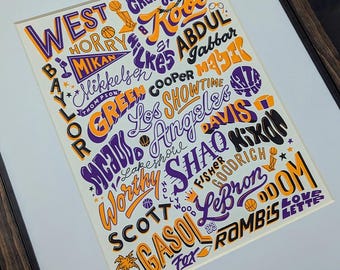 WEST
Kobe
HORRY
ABDUL
Jabbar
MIKAN
WILKES
MAGIC
BAYLOR
Mikkelsen
COOPER
THOMPSON
GREEN
SHOWTIME
Los
Angeles
DAVIS
NIXON
Lakeshow
SHAQ
Worthy
FISHER
GOODRICH
LeBron
ODOM
SCOTT
GASOL
FOX
RAMBIS
LOVELLETTE